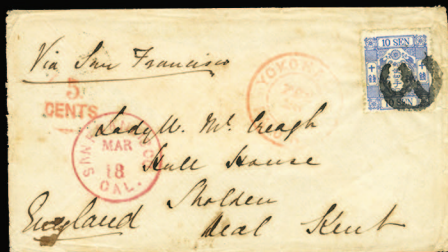 Via San Francisco
10 SEN
10 SEN
5
CENTS
YOKOHA
SAN FRANCISCO
MAR
18
CAL.
Lady M. McCreagh
Hull House
Sholden
Deal Kent
England